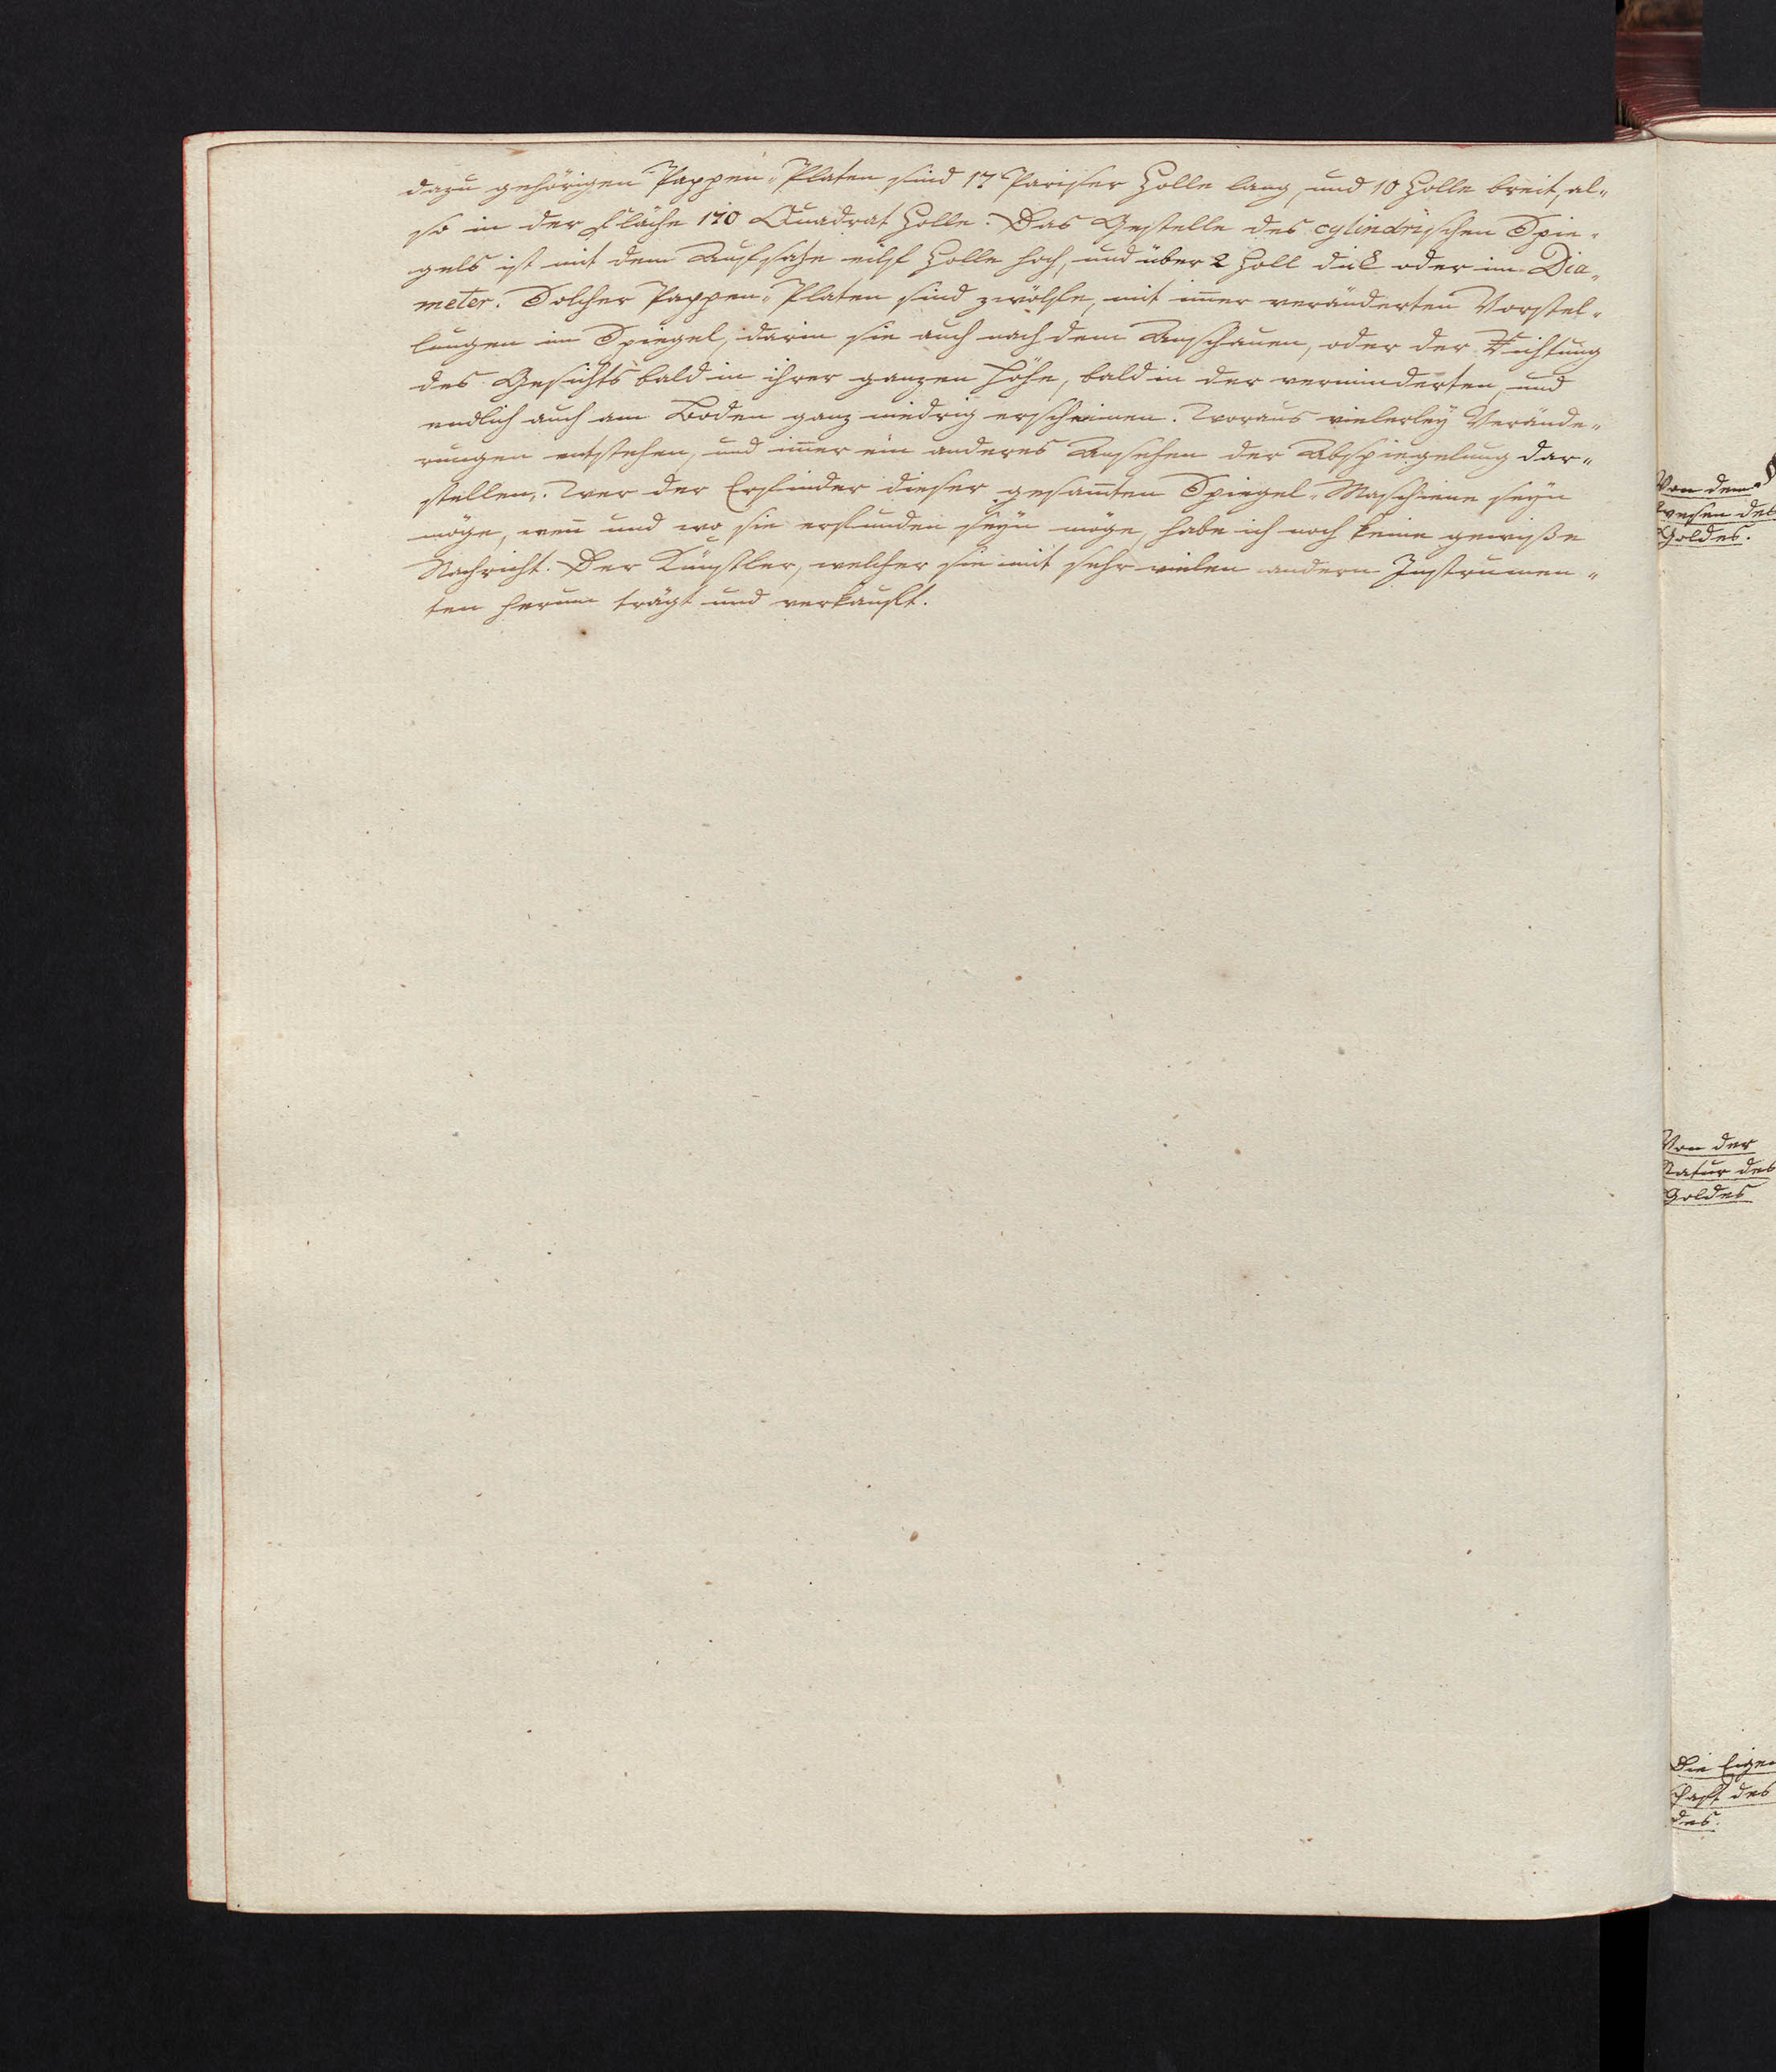 dazu gehörigen Pappen-Platen sind 17 Pariser Zolle lang, und 10 Zolle breit, al-
so in der Fläche 170 Quadrat Zolle. Das Gestelle des cylindrischen Spie-
gels ist mit dem Aufsatze eilf Zolle hoch, und über 2 Zoll dick oder im Dia-
meter. Solcher Pappen-Platen sind zwölfe, mit im̅er veränderten Vorstel-
lungen im Spiegel, darin sie auch nach dem Anschauen, oder der Richtung
des Gesichts bald in ihrer ganzen Höhe, bald in der verminderten, und
endlich auch am Boden ganz niedrig erscheinen. Woraus vielerley Verände-
rungen entstehen, und im̅er ein anderes Ansehen der Abspiegelung dar-
stellen. Wer der Erfinder dieser gesam̅ten Spiegel-Maschiene seyn
möge, wen̅ und wo sie erfunden seyn möge, habe ich noch keine gewiße
Nachricht. Der Künstler, welcher sie mit sehr vielen andern Instrumen-
ten herum trägt und verkauft.
Von dem
wesen des
Goldes.
Von der
Natur des
Goldes
Die Eigen
schaft des
des.